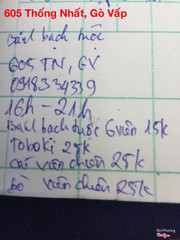 605 Thống Nhất, Gò Vấp
Bánh bạch tuộc
605 TN, GV
0918334339
16h - 21h
Bánh bạch tuộc 6 viên 15k
Toboki 25k
cá viên chiên 25k
bò viên chiên 25k